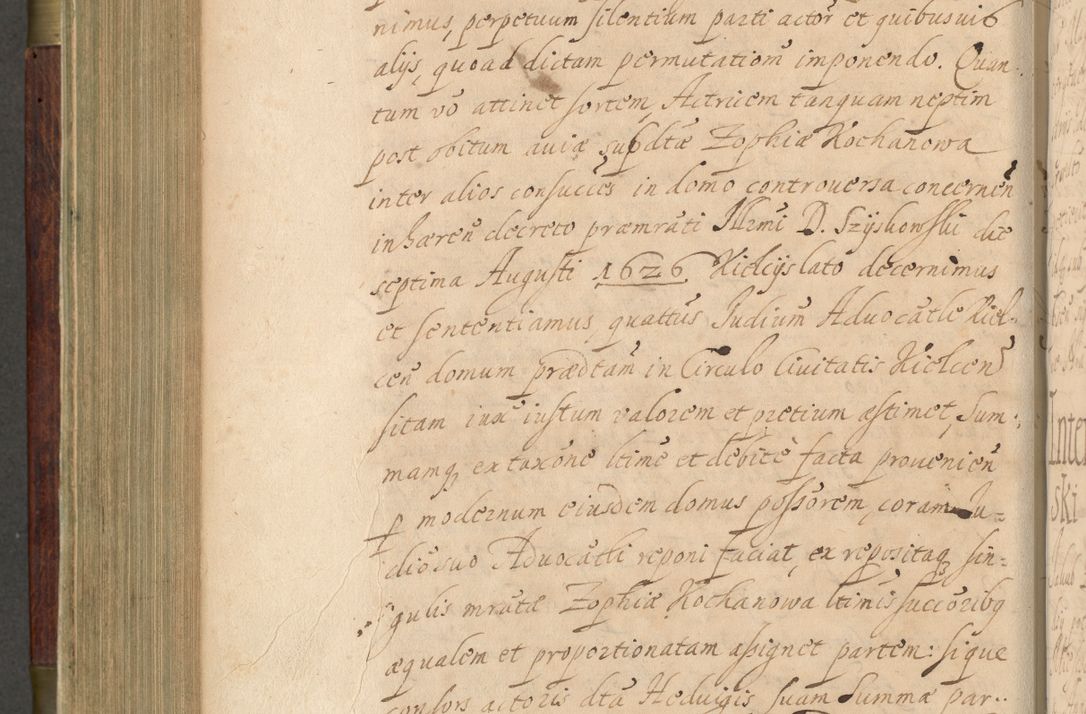 nimus, perpetuum silentium parti actor̃ et quibusuis
alijs, quoad dictam permutationẽ imponendo. Quan-
tum võ attinet sortem, Actricem tanquam neptim
post obitum auiæ supdtæ Zophiæ Kochanowa
inter alios consucces̃ in domo controuersa concernen̄
inhæren̄ decreto præmrãti Illrmi D. Szyskowski die
septima Augusti 1626 Kielcijs lato decernimus
et sententiamus, quattũs Iudiũm Aduocãtle Kiel-
cen̄ domum prædtam̄ in Circulo Ciuitatis Kielcen̄
sitam iuxẽ iustum valorem et pretium æstimet, Sum-
mamq̃ ex taxõne ltimẽ et debite facta prouenien̄
p modernum eiusdem domus possõrem, coram Iu-
diõ suo Aduocãtli reponi faciat, ex repositaq̃ sin-
gulis mrãtæ Zophiæ Kochanowa ltimis succõribq̃
æqualem et proportionatam assignet partem: sique
consors actoris dtã Heduigis suam Summæ par-